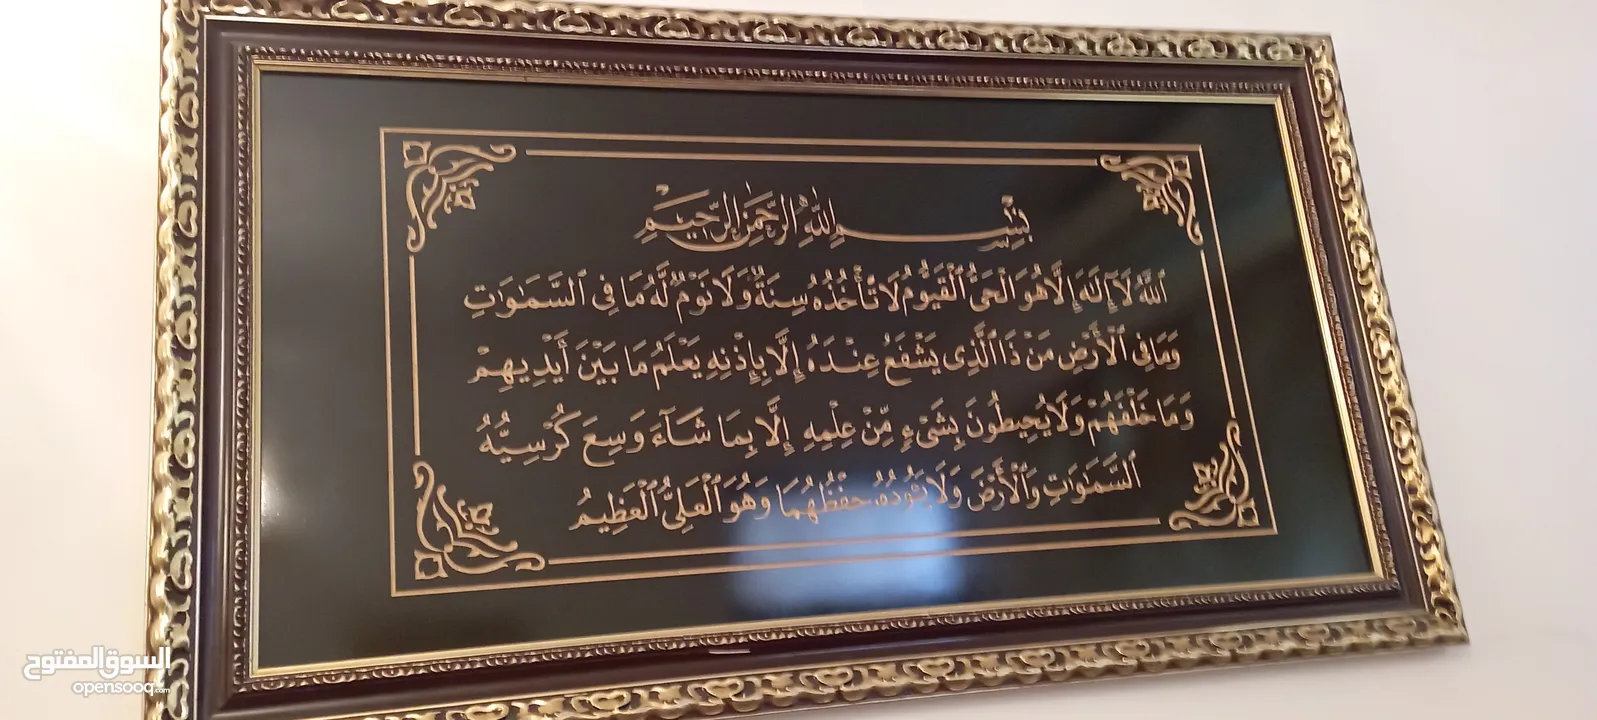 بِسْمِ اللَّهِ الرَّحْمَٰنِ الرَّحِيمِ
ٱللَّهُ لَآ إِلَٰهَ إِلَّا هُوَ ٱلْحَىُّ ٱلْقَيُّومُ لَا تَأْخُذُهُ سِنَةٌ وَلَا نَوْمٌ لَّهُ مَا فِى ٱلسَّمَٰوَٰتِ
وَمَا فِى ٱلْأَرْضِ مَن ذَا ٱلَّذِى يَشْفَعُ عِندَهُ إِلَّا بِإِذْنِهِ يَعْلَمُ مَا بَيْنَ أَيْدِيهِمْ
وَمَا خَلْفَهُمْ وَلَا يُحِيطُونَ بِشَىْءٍ مِّنْ عِلْمِهِ إِلَّا بِمَا شَآءَ وَسِعَ كُرْسِيُّهُ
ٱلسَّمَٰوَٰتِ وَٱلْأَرْضَ وَلَا يَـُٔودُهُ حِفْظُهُمَا وَهُوَ ٱلْعَلِىُّ ٱلْعَظِيمُ
السوق المفتوح
opensooq.com